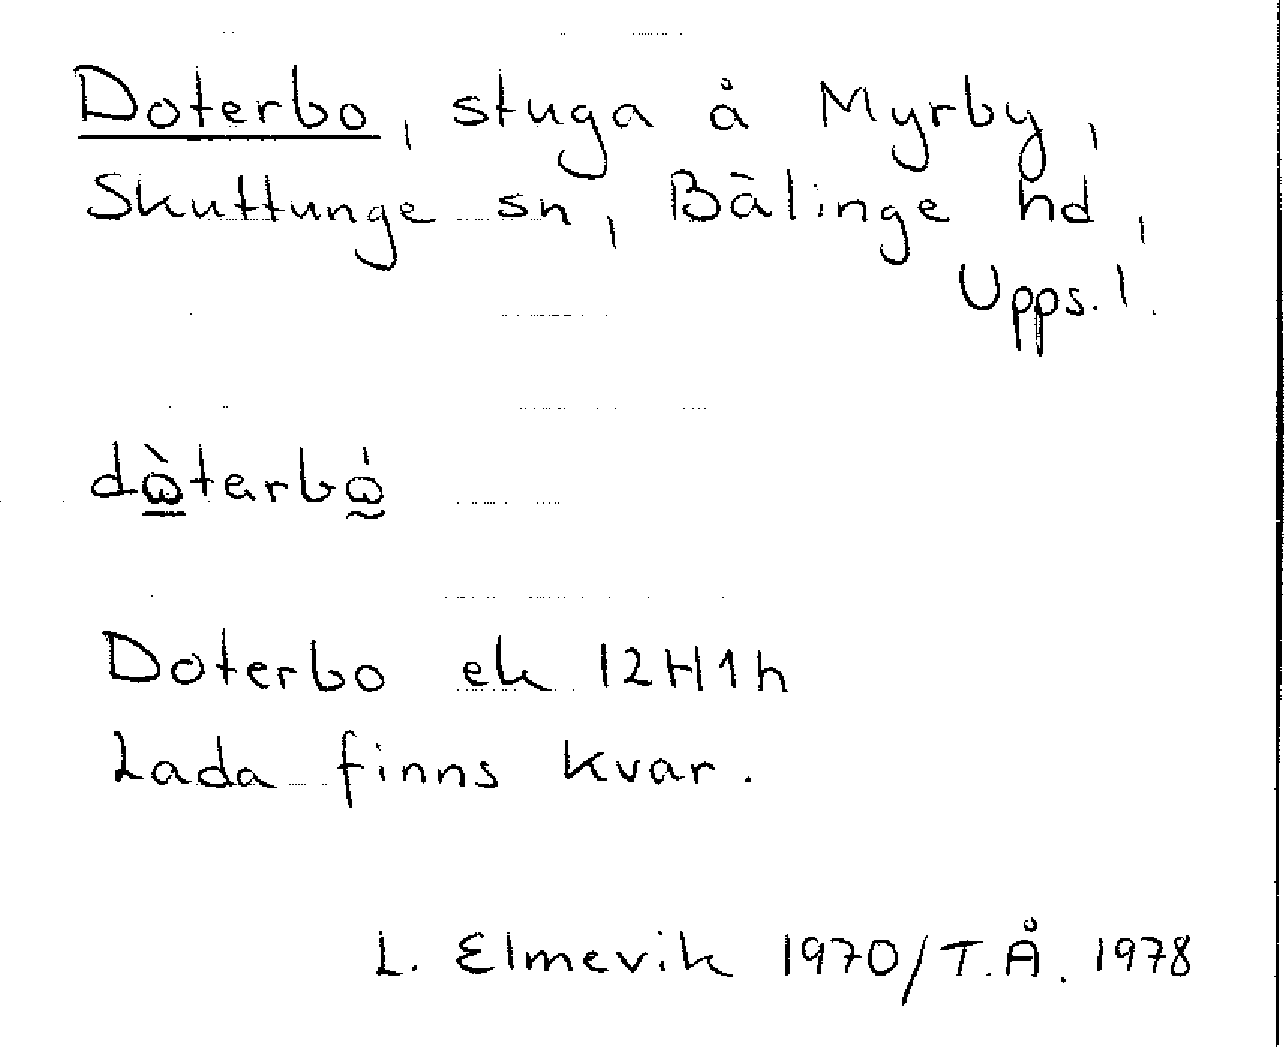 Doterbo, stuga å Myrby,
Skuttunge sn, Bälinge hd,
Upps. l.
dὼ̲tarbώ̰
Doterbo ek 12H1h
Lada finns kvar.
L. Elmevik 1970/T.Å. 1978